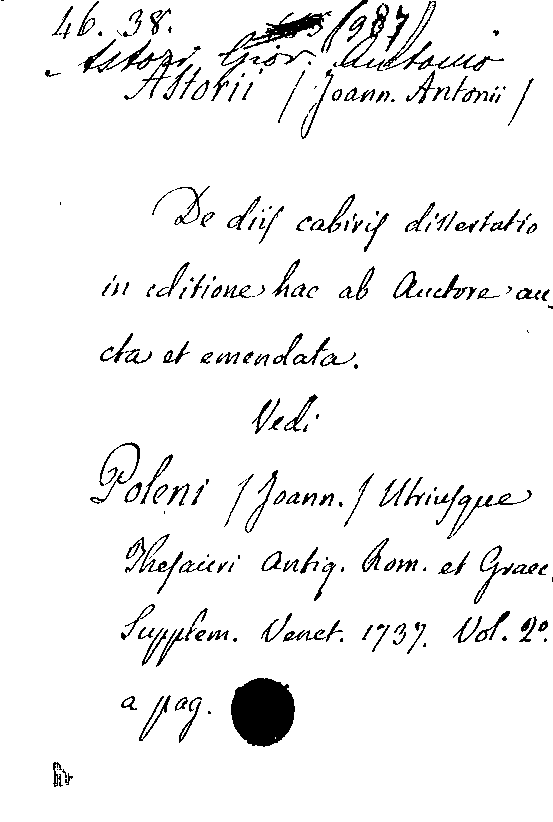 46. 38. (987)
Astori Giov. Antonio
Astorii / Joann. Antonii /
De diis cabiris dissertatio
in editione hac ab Auctore au-
cta et emendata.
Vedi
Poleni / Joann. / Utriusque
Thesauri Antiq. Rom. et Graec.
Supplem. Venet. 1737. Vol. 2º.
a pag.